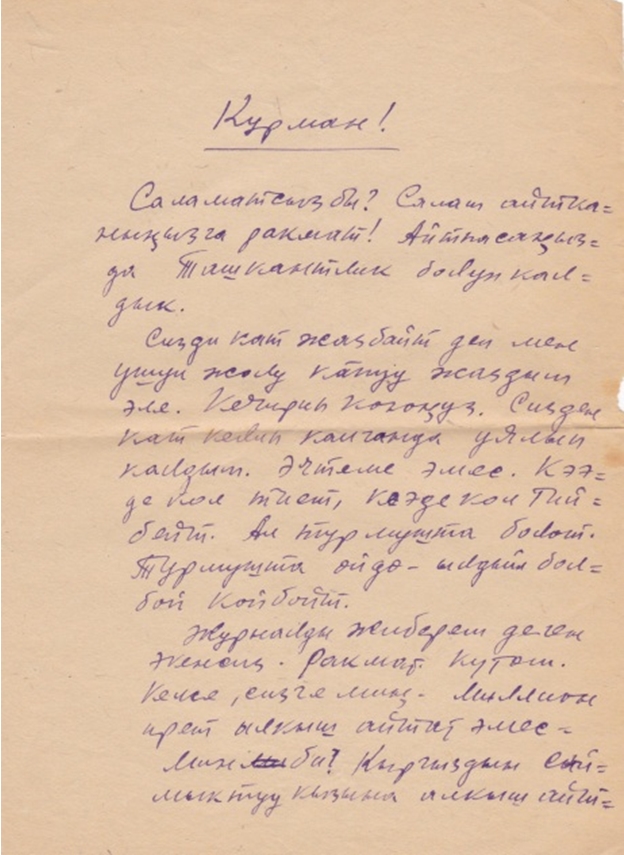 Курман!
Саламатсызбы? Салам айтка=
ныңызга ракмат! Айтпасаңыз=
да Ташкантлик болуп кал=
дык.
Сизди кат жазбайт деп мен
ушул жолу катуу жаздым
эле. Кечирип коюңуз. Сизден
кат келип калганда уялып
калдым. Эчтеме эмес. Кээ=
де кол тиет, кээде кол тий=
бейт. Ал турмушта болот.
Турмушта өйдө-ылдый бол=
бой койбойт.
Журналды жиберем деген
экенсиз. Ракмат. Кутөм.
Келсе, сизге миң - миллион
ирет алкыш айтат эмес=
минби? Кыргыздын сый=
мыктуу кызына алкыш айт=